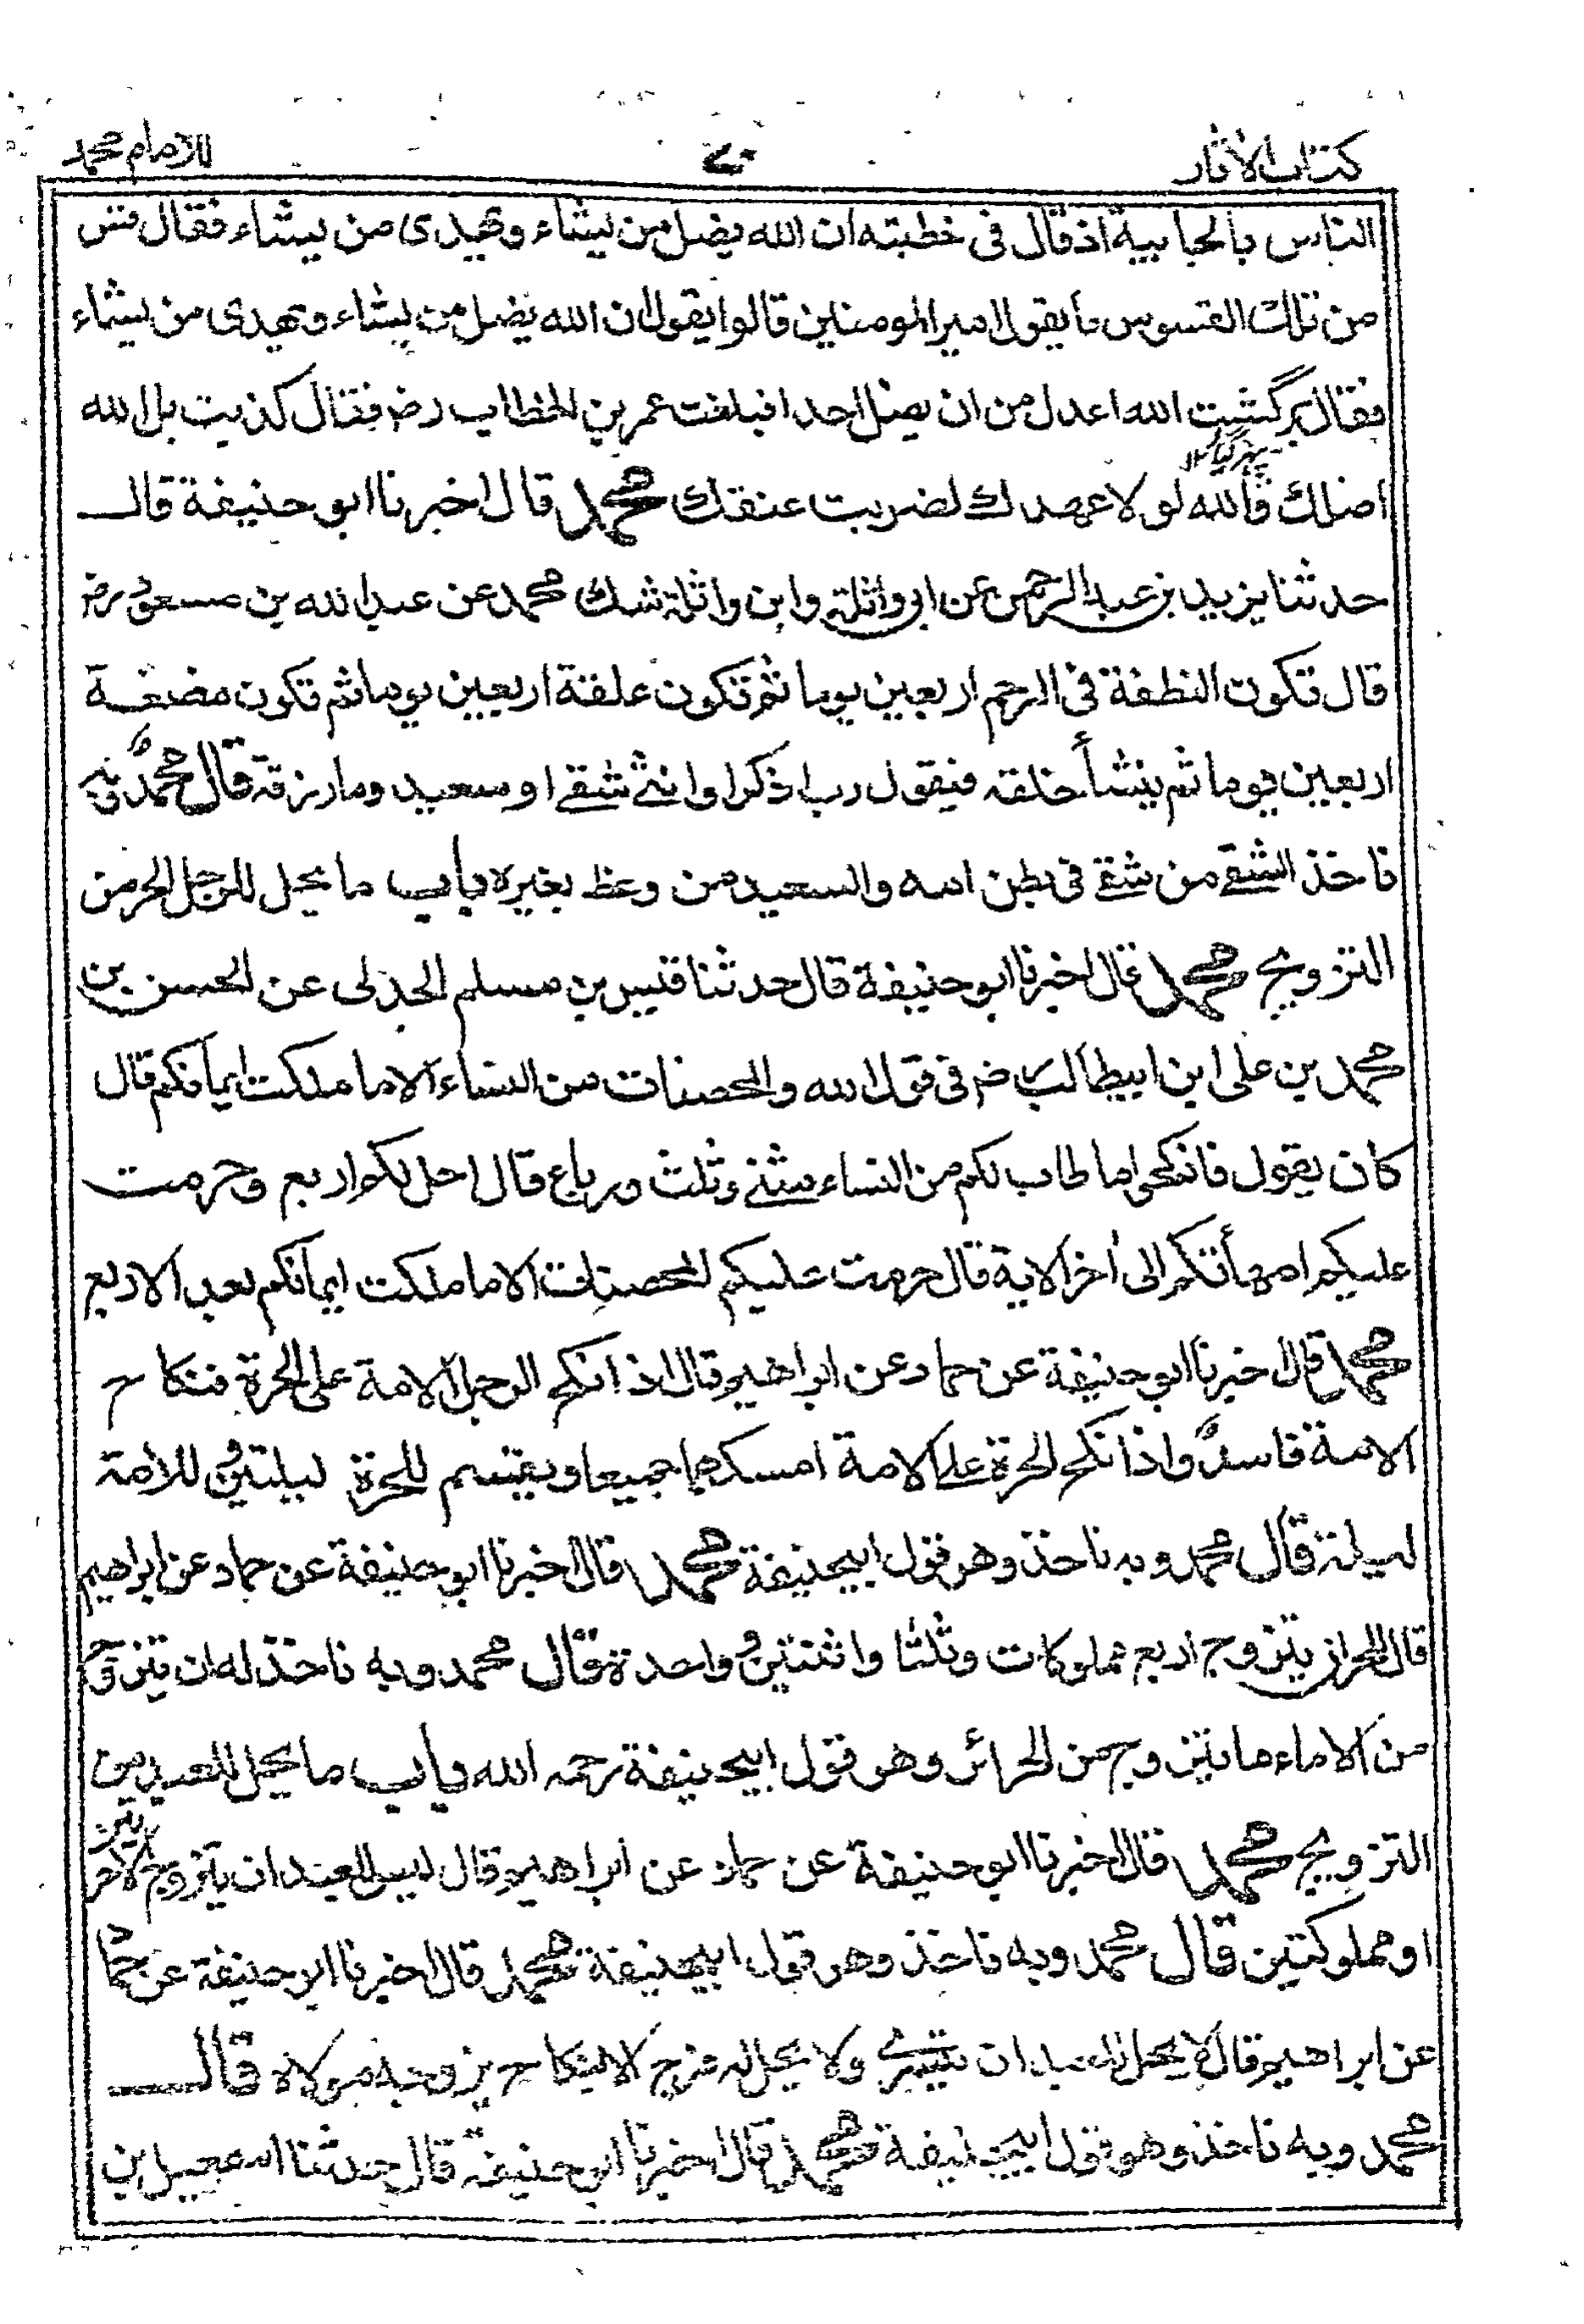 كتاب الآثار ٧٠ للامام محمد
الناس بالجابية اذ قال في خطبته ان الله يضل من يشاء ويهدى من يشاء فقال قس
من تلك القسوس ما يقول امير المومنين قالوا يقول ان الله يضل من يشاء ويهدى من يشاء
فقال برگشت الله اعدل من ان يضل احدا فبلغت عمر بن الخطاب رض فقال كذبت بل الله
اضلك والله لو لا عهدك لضربت عنقك محمد قال اخبرنا ابو حنيفة قال
حدثنا يزيد بن عبد الرحمن عن ابى واثلة وابن واثلة شك محمد عن عبد الله بن مسعود رض
قال تكون النطفة في الرحم اربعين يوما ثم تكون علقة اربعين يوما ثم تكون مضغة
اربعين يوما ثم ينشأ خلقه فيقول رب اذكر او انثے شقے او سعيد وما رزقه قال محمد وبه
ناخذ الشقے من شقے في بطن امه والسعيد من وعظ بغيره باب ما يحل للرجل الحر من
التزويج محمد قال اخبرنا ابو حنيفة قال حدثنا قيس بن مسلم الجدلى عن الحسن بن
محمد بن على ابن ابيطالب رض في قول الله والمحصنات من النساء الا ما ملكت ايمانكم قال
كان يقول فانكحوا ما طاب لكم من النساء مثنے وثلث ورباع قال احل لكم اربع وحرمت
عليكم امهاتكم الى اخر الاية قال حرمت عليكم المحصنات الا ما ملكت ايمانكم بعد الاربع
محمد قال اخبرنا ابو حنيفة عن حماد عن ابراهيم قال اذا نكح الرجل الامة على الحرة فنكاح
الامة فاسد واذا نكح الحرة على الامة امسكهما جميعا ويقسم للحرة ليلتين وللامة
ليلة قال محمد وبه ناخذ وهو قول ابيحنيفة محمد قال اخبرنا ابو حنيفة عن حماد عن ابراهيم
قال للحر ان يتزوج اربع مملوكات وثلثا واثنتين وواحدة قال محمد وبه ناخذ له ان يتزوج
من الاماء ما يتزوج من الحرائر وهو قول ابيحنيفة رحمه الله باب ما يحل للعبد من
التزويج محمد قال اخبرنا ابو حنيفة عن حماد عن ابراهيم قال ليس للعبد ان يتزوج الا حرتين
او مملوكتين قال محمد وبه ناخذ وهو قول ابيحنيفة محمد قال اخبرنا ابو حنيفة عن حماد
عن ابراهيم قال لا يحل للعبد ان يتسرے ولا يحل له فرج الا بنكاح يزوجه مولاه قال
محمد وبه ناخذ وهو قول ابيحنيفة محمد قال اخبرنا ابو حنيفة قال حدثنا اسمعيل بن